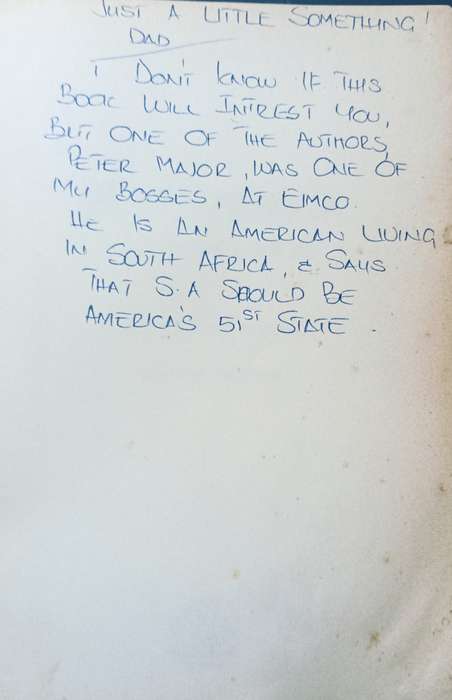 JUST A LITTLE SOMETHING!
DAD
I DON'T KNOW IF THIS
BOOK WILL INTREST YOU,
BUT ONE OF THE AUTHORS,
PETER MAJOR, WAS ONE OF
MY BOSSES, AT EIMCO.
HE IS AN AMERICAN LIVING
IN SOUTH AFRICA, & SAYS
THAT S.A SHOULD BE
AMERICA'S 51ST STATE.